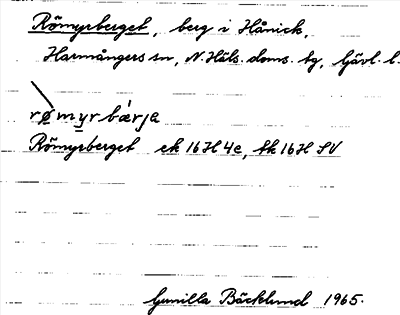 Römyrberget, berg i Hånick,
Harmångers sn, N. Häls. doms. bg, Gävl. l.
rømyrbærja
Römyrberget ek 16 H 4e, tk 16 H SV
Gunilla Bäcklund 1965.